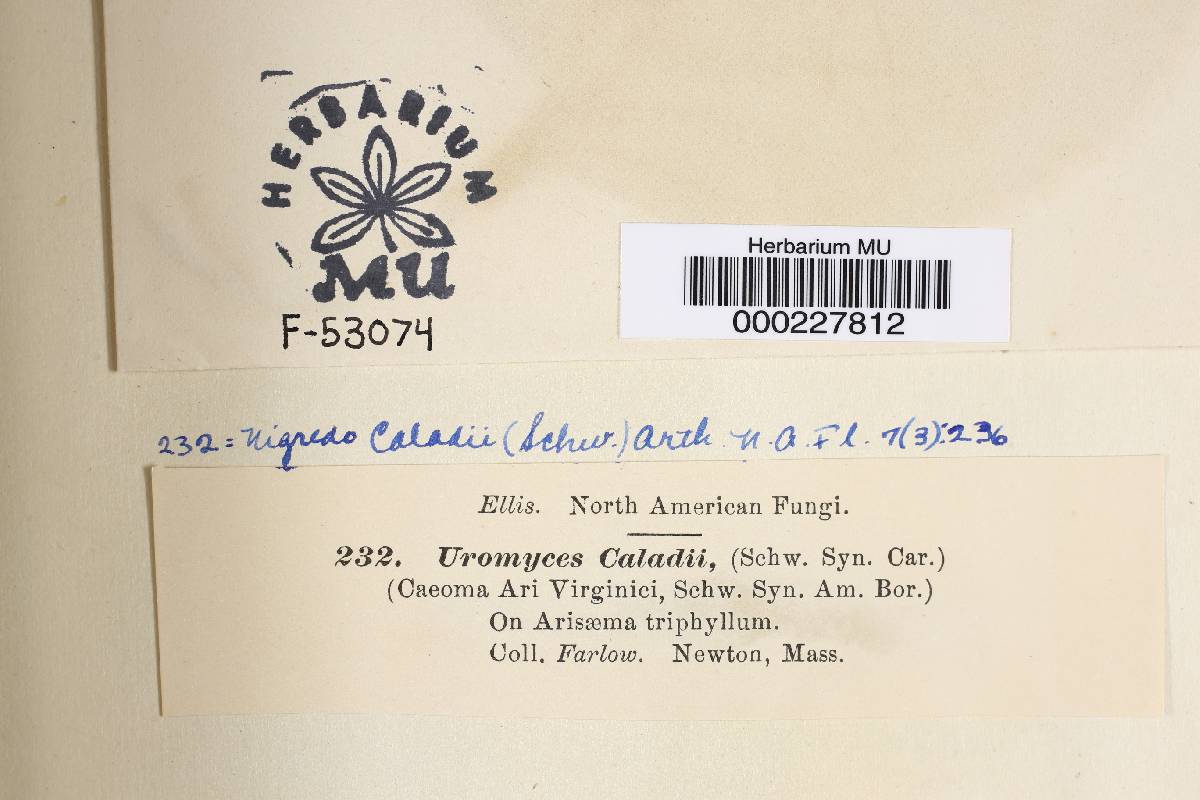 HERBARIUM
MU
F-53074
Herbarium MU
000227812
232 = Nigredo Caladii (Schw.) Arth. N. A. Fl. 7(3):236
Ellis. North American Fungi.
232. Uromyces Caladii, (Schw. Syn. Car.)
(Caeoma Ari Virginici, Schw. Syn. Am. Bor.)
On Arisæma triphyllum.
Coll. Farlow. Newton, Mass.